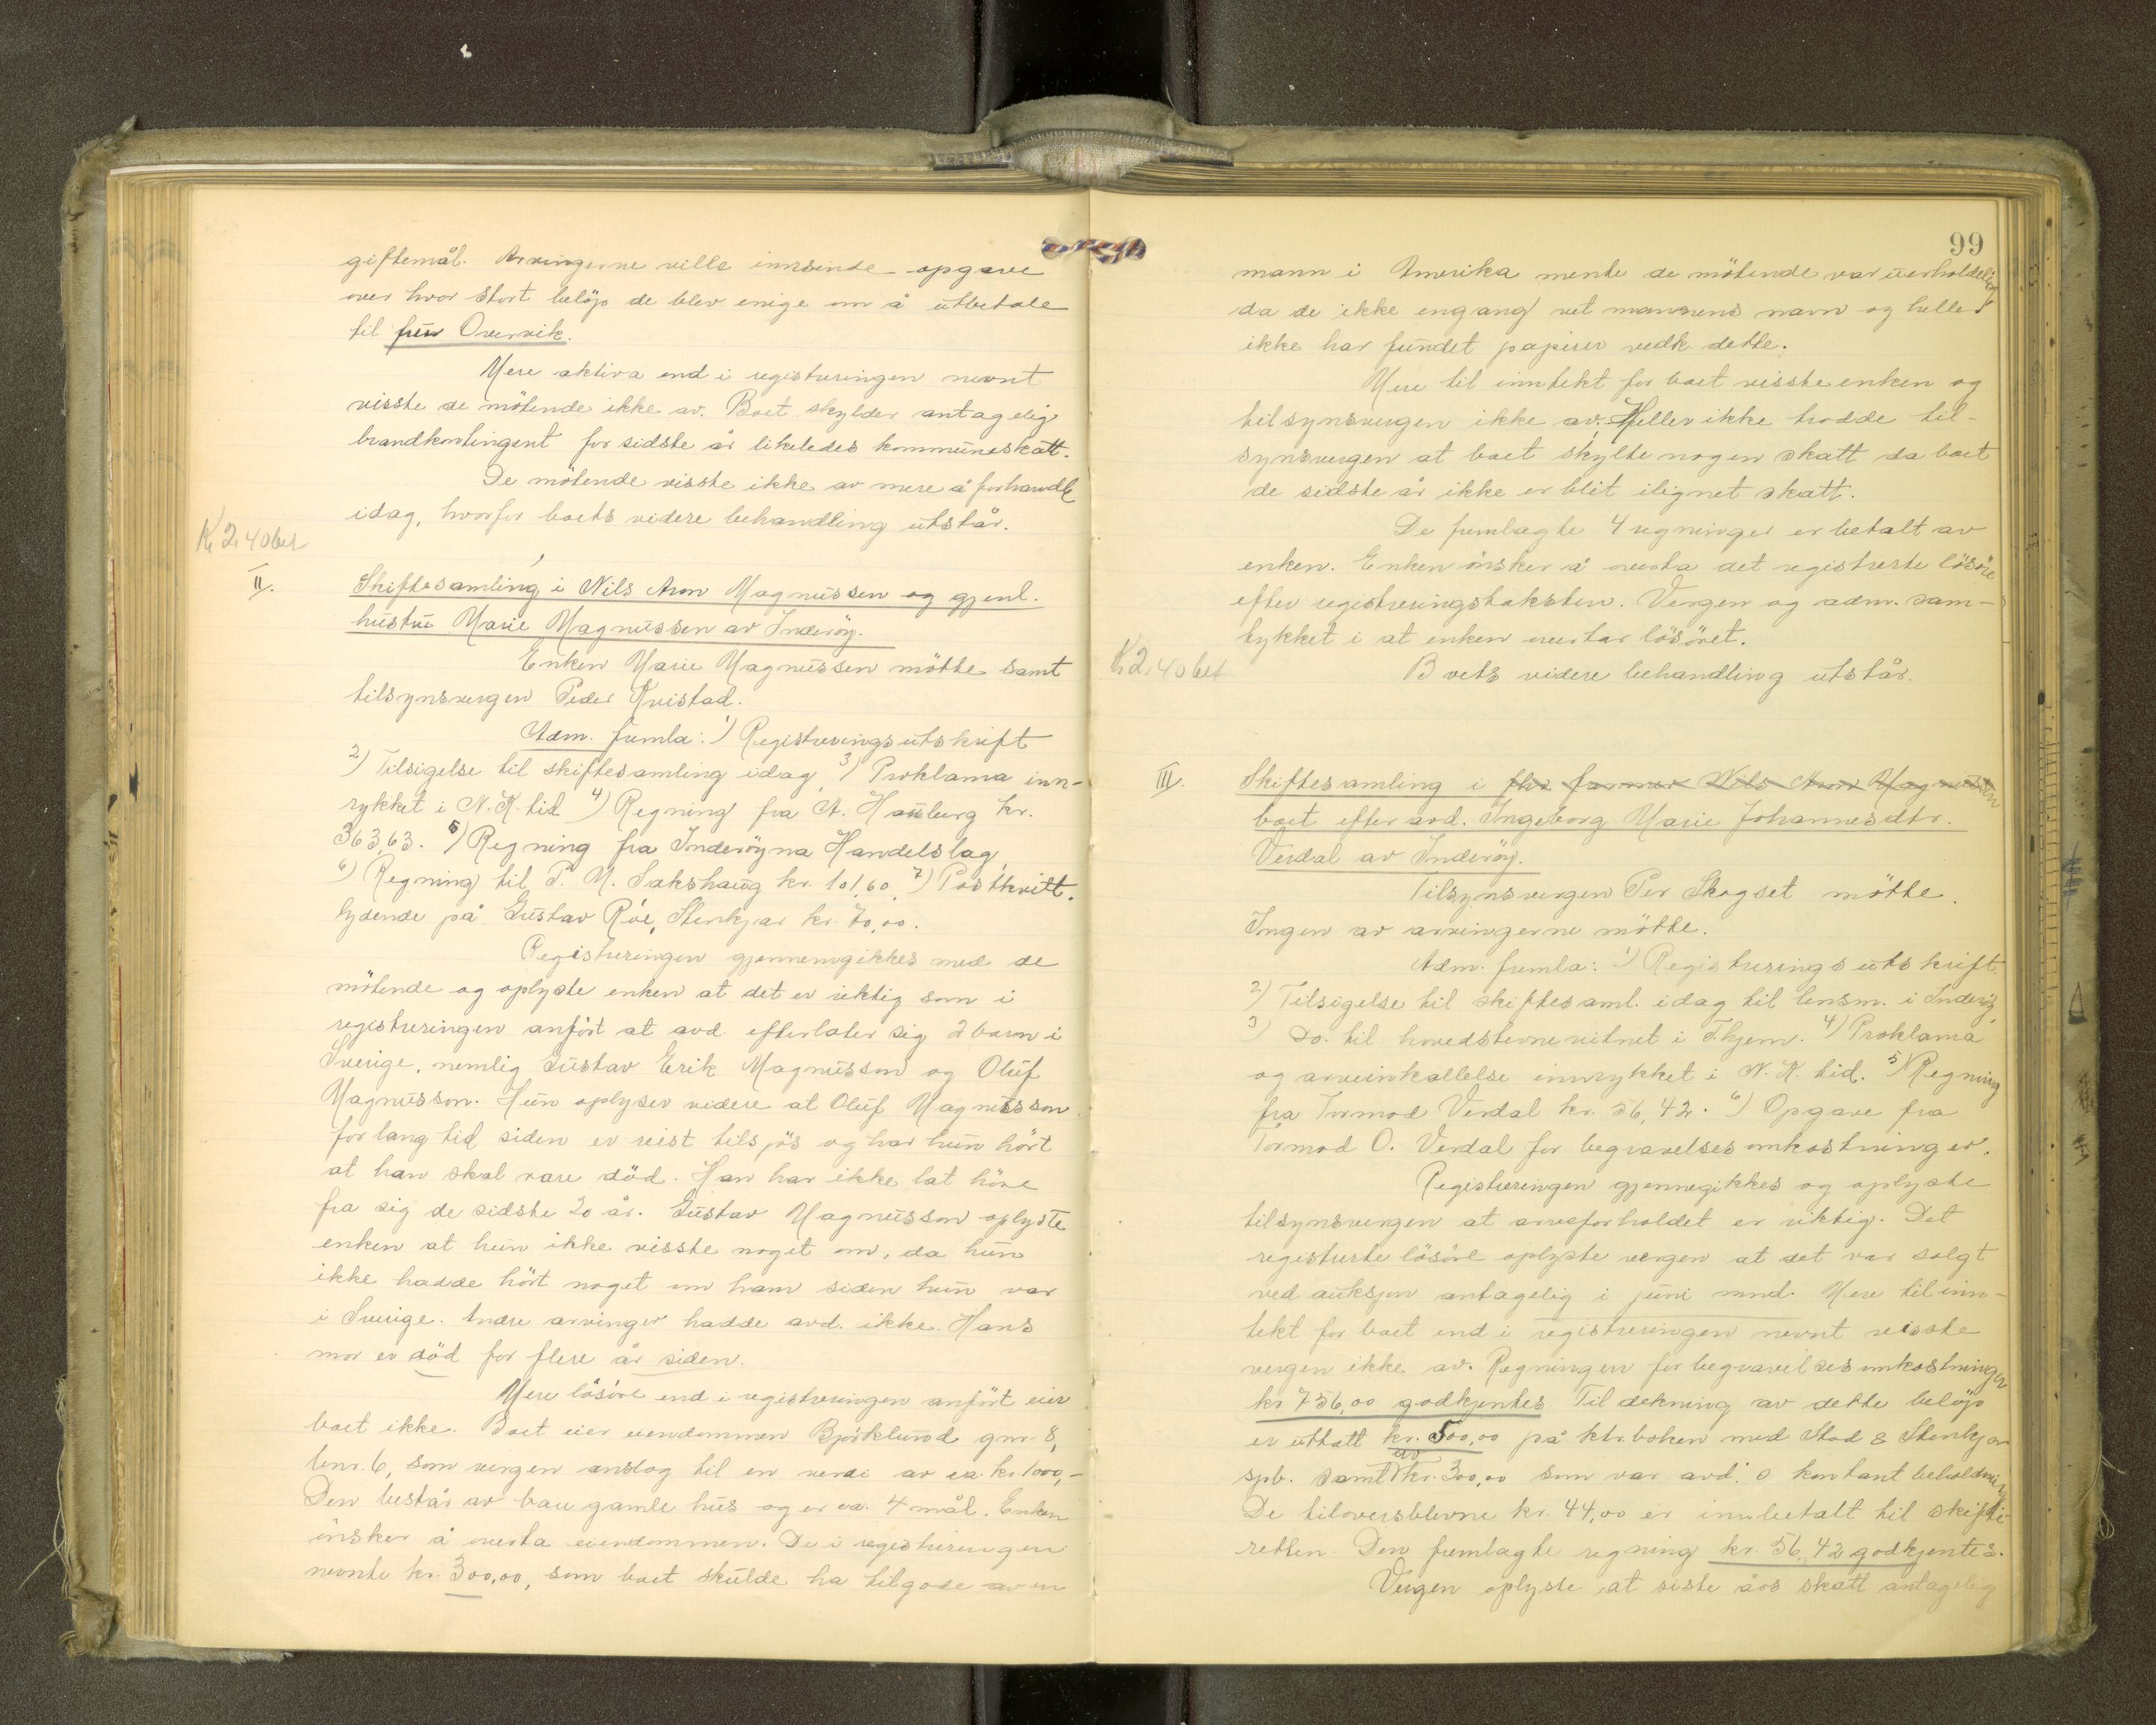 giftemål. Arvingerne ville innsende opgave
over hvor stort belöp de blev enige om å utbetale
til fru Overvik.
Mere aktiva end i registreringen nevnt
visste de mötende ikke av. Boet skylder antagelig
brandkontingent for sidste år likeledes kommuneskatt.
De mötende visste ikke av mere å forhandle
idag, hvorfor boets videre behandling utstår.
K 2,40 bet
II.
Skiftesamling i Nils Aron Magnussen og gjenl.
hustru Marie Magnussen av Inderöy.
Enken Marie Magnussen mötte samt
tilsynsvergen Peder Kvistad.
Adm. fremla: 1) Registreringsutskrift
2) Tilsigelse til skiftesamling idag, 3) Proklama inn-
rykket i N.K. tid 4) Regning fra A. Hauberg kr.
363,63. 5) Regning fra Inderöyna Handelslag,
6) Regning til P. M. Sakshaug kr. 101,60 7) Postkvitt.
lydende på Gustav Röe, Stenkjær kr. 70,00.
Registreringen gjennemgikkes med de
mötende og oplyste enken at det er riktig som i
registreringen anfört at avd. efterlater sig 2 barn i
Sverige, nemlig Gustav Erik Magnusson og Oluf
Magnusson. Hun oplyser videre at Oluf Magnusson
for lang tid siden er reist tilsjös og har hun hört
at han skal være död. Han har ikke lat höre
fra sig de sidste 20 år. Gustav Magnusson oplyste
enken at hun ikke visste noget om, da hun
ikke hadde hört noget om ham siden hun var
i Sverige. Andre arvinger hadde avd. ikke. Hans
mor er död for flere år siden.
Mere lösöre end i registreringen anfört eier
boet ikke. Boet eier eiendommen Björklund gnr. 8,
bnr. 6, som vergen anslog til en verdi av ca. kr. 1000,-
Den består av bare gamle hus og er ca. 4 mål. Enken
önsker å overta eiendommen. De i registreringen
nevnte kr. 300,00, som boet skulde ha tilgode av en
99
mann i Amerika mente de mötende var uerholdelig
da de ikke engang vet mannens navn og heller
ikke har fundet papirer vedk. dette.
Mere til inntekt for boet visste enken og
tilsynsvergen ikke av. Heller ikke trodde til-
synsvergen at boet skylte nogen skatt da boet
de sidste år ikke er blit ilignet skatt.
De fremlagte 4 regninger er betalt av
enken. Enken önsker å overta det registrerte lösöre
efter registreringstaksten. Vergen og adm. sam-
tykket i at enken overtar lösöret.
K 2,40 bet
Boets videre behandling utstår.
III.
Skiftesamling i Nils Aron Magnussen
boet efter avd. Ingeborg Marie Johannesdtr.
Verdal av Inderöy.
Tilsynsvergen Per Skogset mötte.
Ingen av arvingerne mötte.
Adm. fremla: 1) Registreringsutskrift.
2) Tilsigelse til skiftesaml. idag til lensm. i Inderöy,
3) Do. til hovedstevnevitnet i T.hjem. 4) Proklama
og arveinkallelse innrykket i N.K. tid. 5) Regning
fra Tormod Verdal kr. 56,42. 6) Opgave fra
Tormod O. Verdal for begravelsesomkostninger.
Registreringen gjennegikkes og oplyste
tilsynsvergen at arveforholdet er riktig. Det
registrerte lösöre oplyste vergen at det var solgt
ved auksjon antagelig i juni mnd. Mere til inn-
tekt for boet end i registreringen nevnt visste
vergen ikke av. Regningen for begravelsesomkostninger
kr 756,00 godkjentes Til dekning av dette belöp
er uttatt kr. 500,00 på ktr.boken med Stod & Stenkjær
spb. samt av kr. 300,00 som var avd.s kontant beholdning
De tiloversblevne kr. 44,00 er innbetalt til skifte-
retten. Den fremlagte regning kr. 56,42 godkjentes.
Vergen oplyste at siste års skatt antagelig